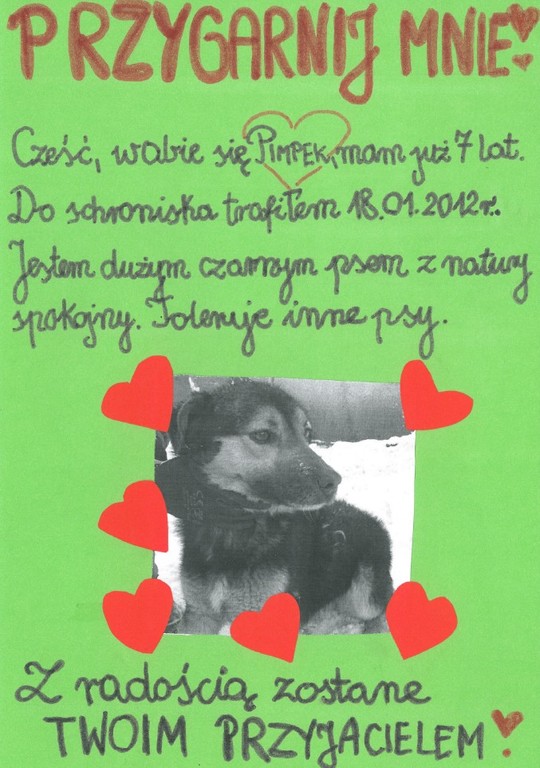 PRZYGARNIJ MNIE!
Cześć, wabie się PIMPEK, mam już 7 lat.
Do schroniska trafiłem 18.01.2012r.
Jestem dużym czarnym psem z natury
spokojny. Toleruje inne psy.
Z radością zostane
TWOIM PRZYJACIELEM!